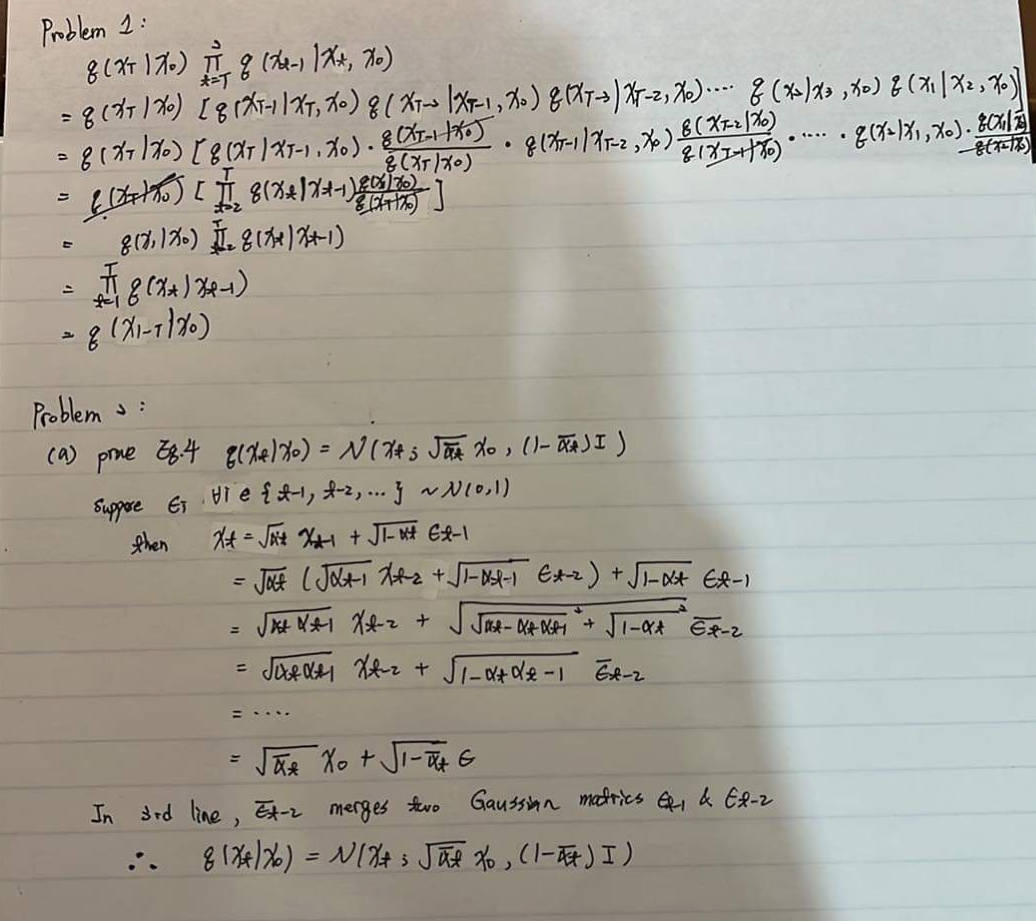 Problem 1:
q(x_T|x_0) ∏_{t=T}^{2} q(x_{t-1}|x_t, x_0)
= q(x_T|x_0) [q(x_{T-1}|x_T, x_0) q(x_{T-2}|x_{T-1}, x_0) q(x_{T-3}|x_{T-2}, x_0) ···· q(x_2|x_3, x_0) q(x_1|x_2, x_0)]
= q(x_T|x_0) [q(x_T|x_{T-1}, x_0) · q(x_{T-1}|x_0)/q(x_T|x_0) · q(x_{T-1}|x_{T-2}, x_0) q(x_{T-2}|x_0)/q(x_{T-1}|x_0) · ···· · q(x_2|x_1, x_0) · q(x_1|x_0)/q(x_2|x_0)
= q(x_T|x_0) [∏_{t=2}^{T} q(x_t|x_{t-1}) q(x_1|x_0)/q(x_T|x_0)]
= q(x_1|x_0) ∏_{t=2}^{T} q(x_t|x_{t-1})
= ∏_{t=1}^{T} q(x_t|x_{t-1})
= q(x_{1-T}|x_0)
Problem 2:
(a) prove Eq.4 q(x_t|x_0) = N(x_t; √ᾱ_t x_0, (1-ᾱ_t)I)
Suppose ϵ_i ∀i ∈ {t-1, t-2, ...} ~ N(0,1)
then x_t = √α_t x_{t-1} + √(1-α_t) ϵ_{t-1}
= √α_t (√α_{t-1} x_{t-2} + √(1-α_{t-1}) ϵ_{t-2}) + √(1-α_t) ϵ_{t-1}
= √(α_t α_{t-1}) x_{t-2} + √(√(α_t-α_t α_{t-1})² + √(1-α_t)²) ϵ̄_{t-2}
= √(α_t α_{t-1}) x_{t-2} + √(1-α_t α_{t-1}) ϵ̄_{t-2}
= ····
= √ᾱ_t x_0 + √(1-ᾱ_t) ϵ
In 3rd line, ϵ̄_{t-2} merges two Gaussian matrics ϵ_{t-1} & ϵ_{t-2}
∴ q(x_t|x_0) = N(x_t; √ᾱ_t x_0, (1-ᾱ_t)I)